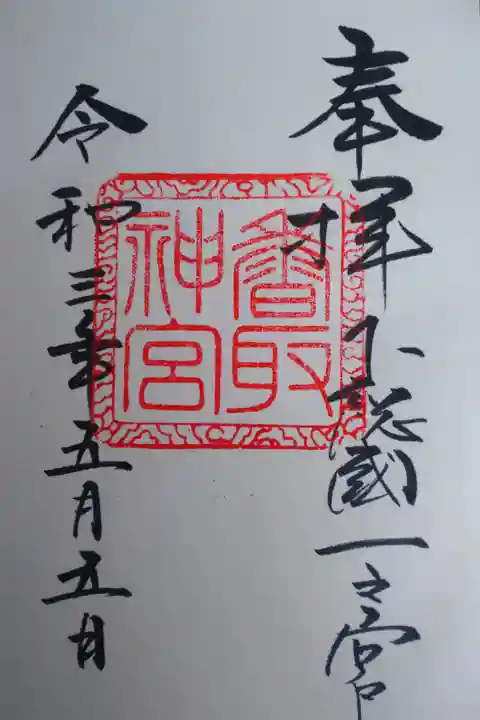 奉拝 下総國一之宮
香取
神宮
令和三年五月五日